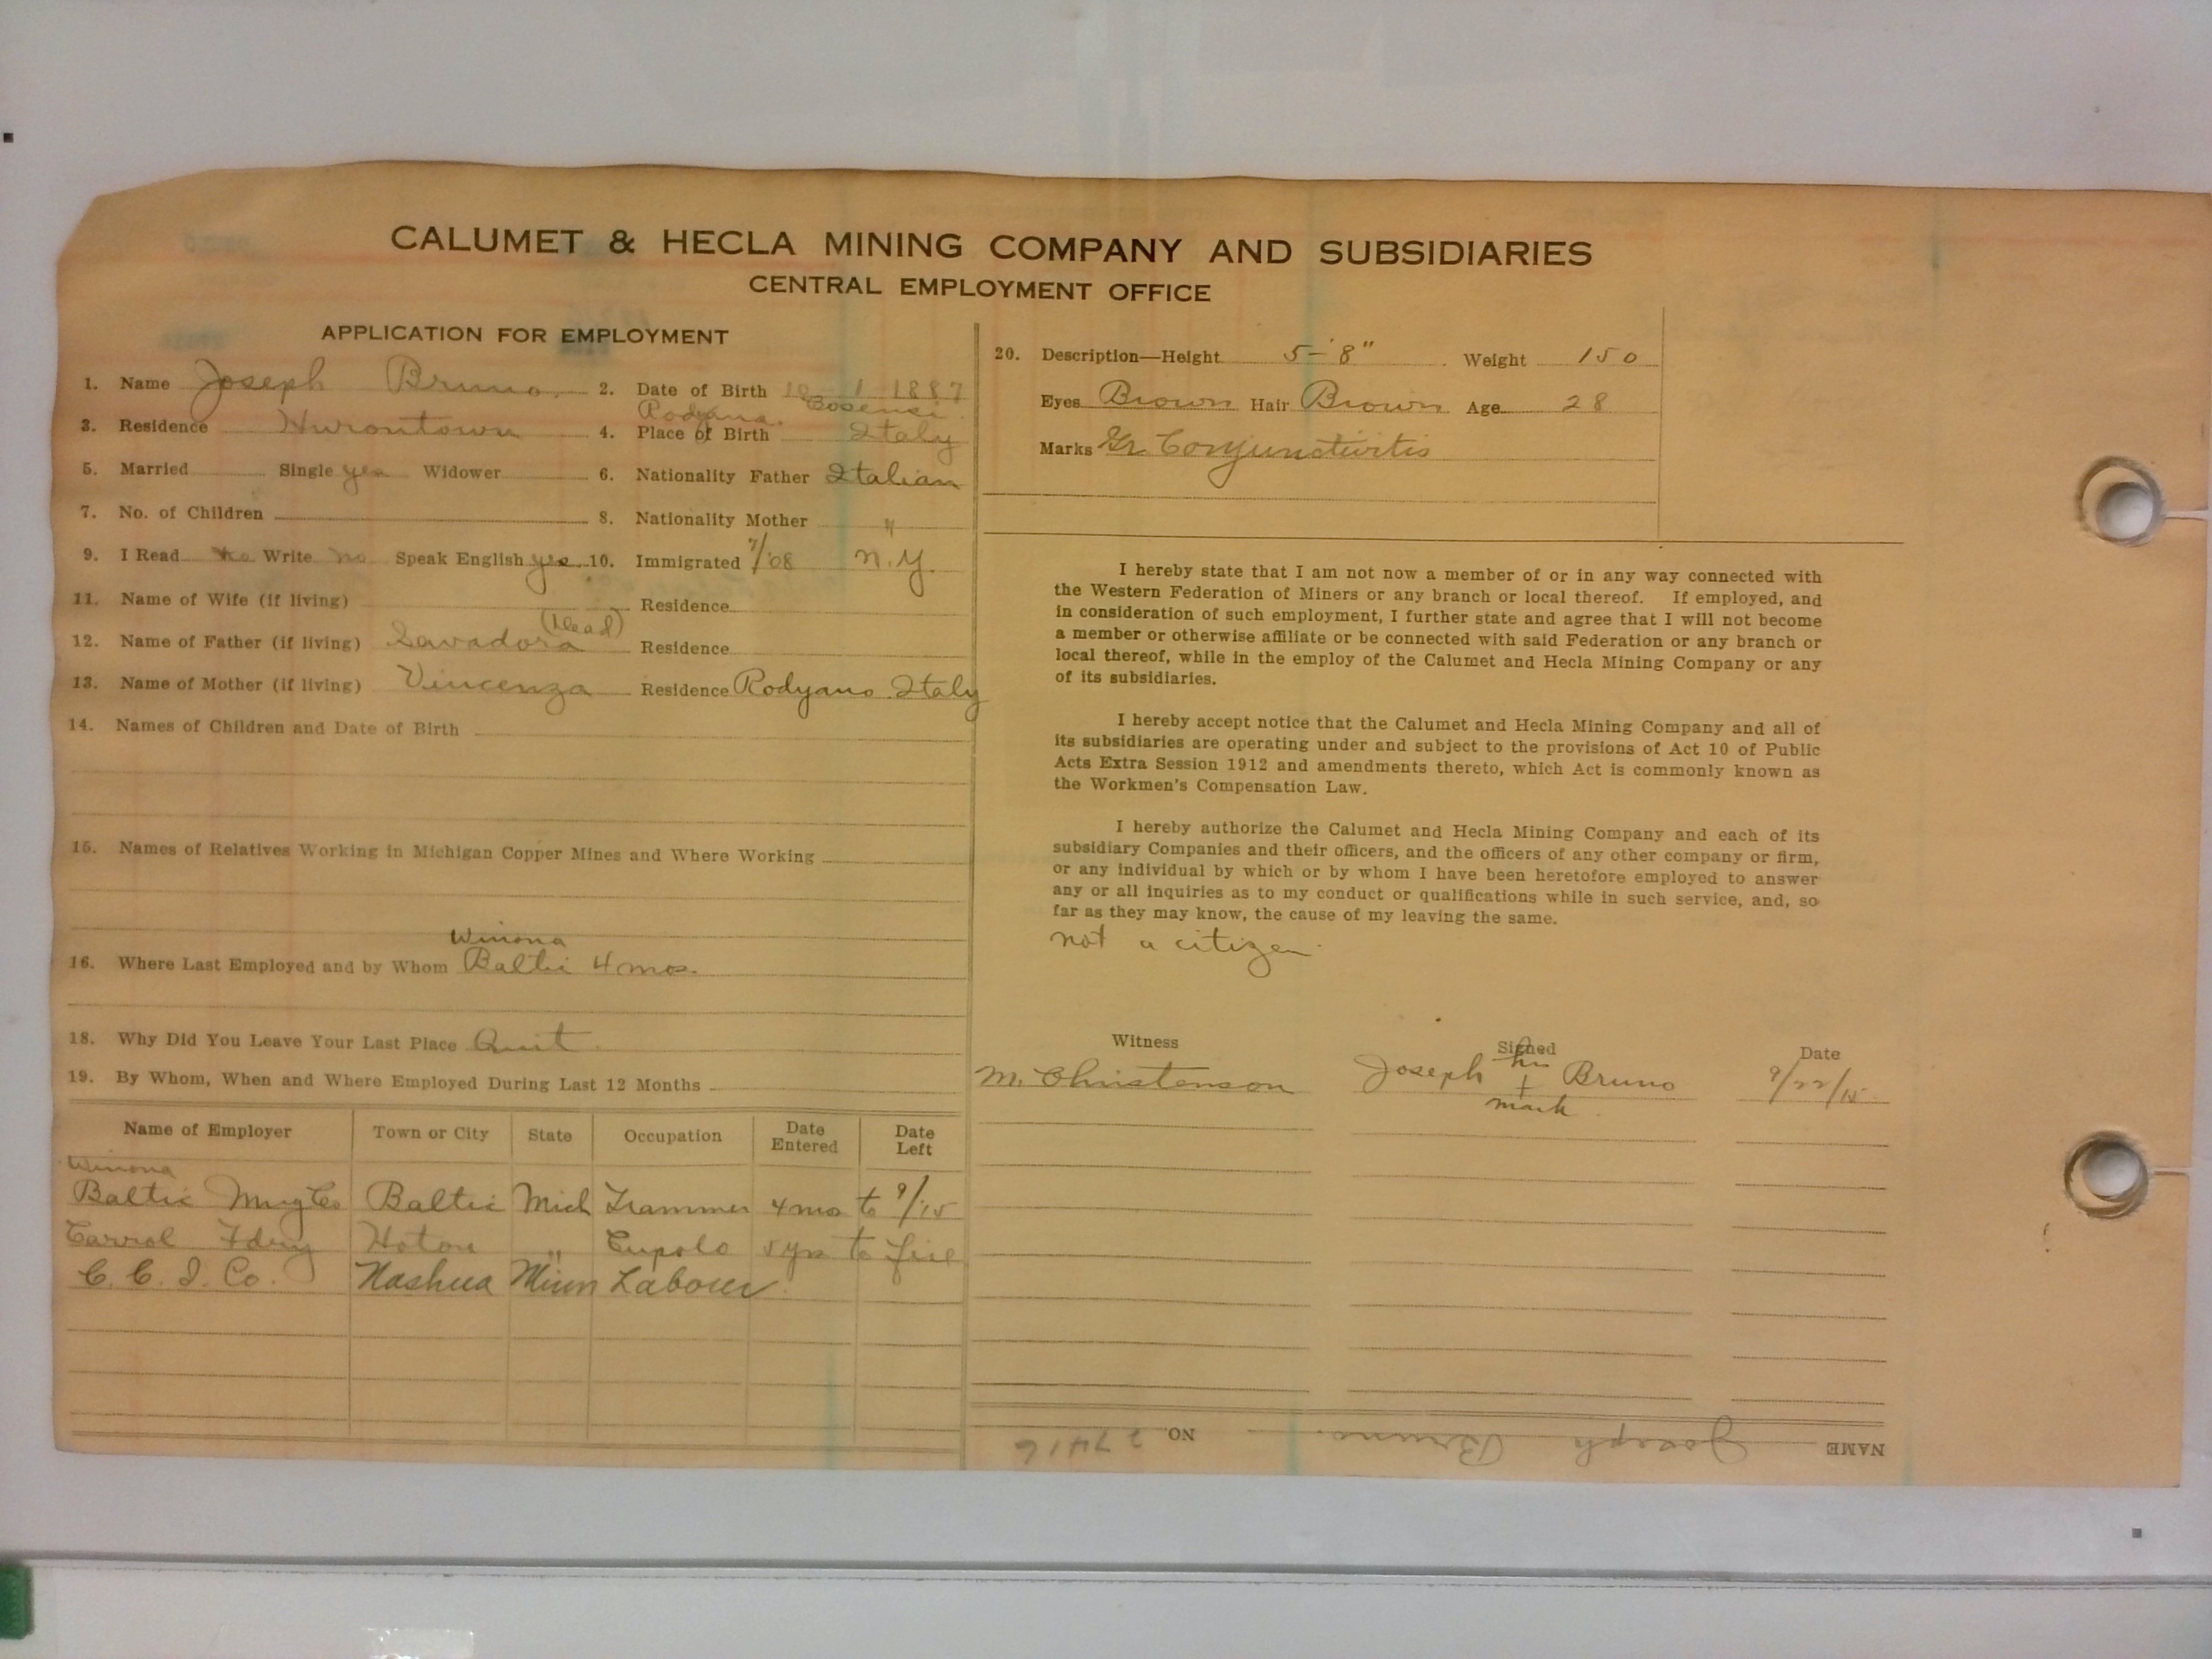 CALUMET & HECLA MINING COMPANY AND SUBSIDIARIES
CENTRAL EMPLOYMENT OFFICE
APPLICATION FOR EMPLOYMENT
1. Name Joseph Bruno. 2. Date of Birth 10-1-1887
Rodyana. Cosensi
3. Residence Hurontown 4. Place of Birth Italy
5. Married Single yes Widower 6. Nationality Father Italian
7. No. of Children 8. Nationality Mother "
9. I Read no Write no Speak English yes 10. Immigrated 7/08 N.Y.
11. Name of Wife (if living) Residence
(Dead)
12. Name of Father (if living) Savadora Residence
13. Name of Mother (if living) Vincenza Residence Rodyano Italy
14. Names of Children and Date of Birth
15. Names of Relatives Working in Michigan Copper Mines and Where Working
Winona
16. Where Last Employed and by Whom Baltic 4 mos.
18. Why Did You Leave Your Last Place Quit
19. By Whom, When and Where Employed During Last 12 Months
Name of Employer Town or City State Occupation Date Entered Date Left
Winona
Baltic Mng Co Baltic Mich Trammer 4 mo to 9/15
Carrol Fdry Hoton " Cupolo 5 yrs to
C. C. I. Co. Nashua Minn Laborer
20. Description—Height 5-'8" Weight 150
Eyes Brown Hair Brown Age 28
Marks Gr. Conjunctivitis
I hereby state that I am not now a member of or in any way connected with
the Western Federation of Miners or any branch or local thereof. If employed, and
in consideration of such employment, I further state and agree that I will not become
a member or otherwise affiliate or be connected with said Federation or any branch or
local thereof, while in the employ of the Calumet and Hecla Mining Company or any
of its subsidiaries.
I hereby accept notice that the Calumet and Hecla Mining Company and all of
its subsidiaries are operating under and subject to the provisions of Act 10 of Public
Acts Extra Session 1912 and amendments thereto, which Act is commonly known as
the Workmen's Compensation Law.
I hereby authorize the Calumet and Hecla Mining Company and each of its
subsidiary Companies and their officers, and the officers of any other company or firm,
or any individual by which or by whom I have been heretofore employed to answer
any or all inquiries as to my conduct or qualifications while in such service, and, so
far as they may know, the cause of my leaving the same.
not a citizen
Witness Signed Date
his
M. Christenson Joseph + Bruno 9/22/15
mark
NAME Joseph Bruno. NO. 27416